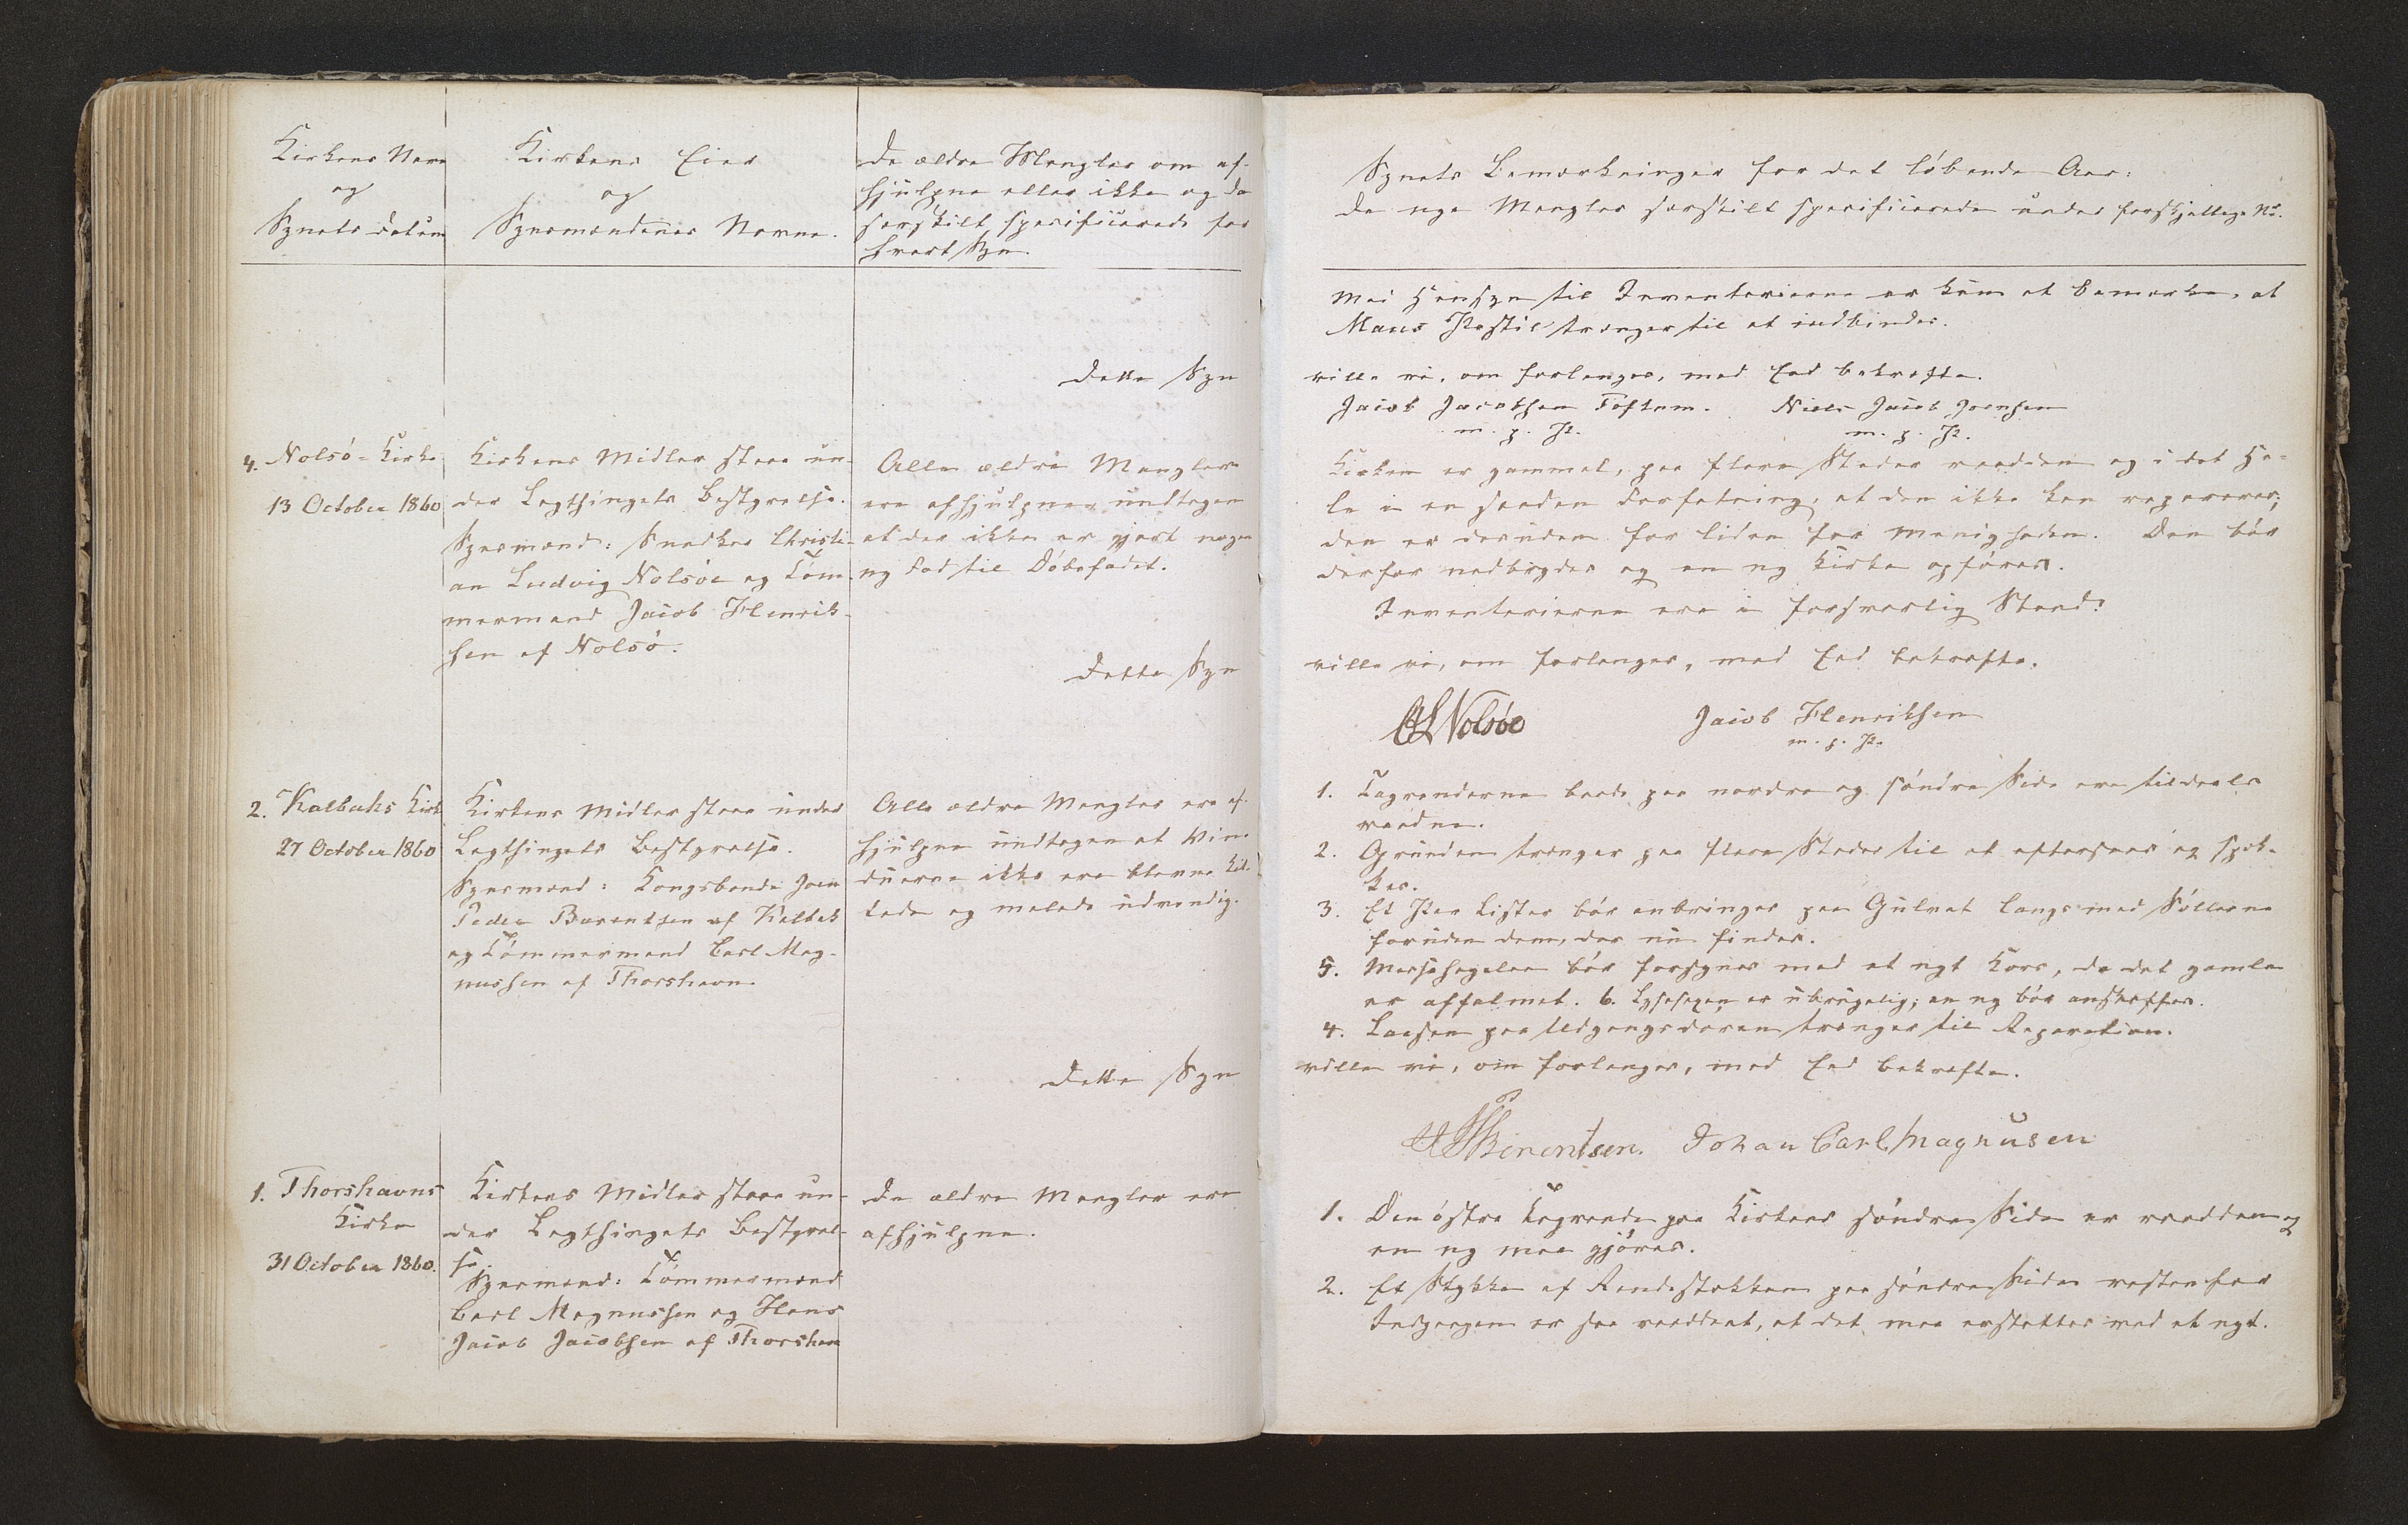 Kirkens Navn
og
Synets Datum
Kirkens Eier
og
Synsmændenes Navne.
De ældre Mangler om af-
hjulpne eller ikke og da
særskilt specificerede for
hvert Syn.
Dette Syn
4. Nolsö-Kirke
13 October 1860
Kirkens Midler staae un-
der Lagthingets Bestyrelse.
Synsmænd: Snedker Christi-
an Ludvig Nolsöe og Töm-
mermand Jacob Henrik-
sen af Nolsö.
Alle ældre Mangler
ere afhjulpne undtagen
at der ikke er gjort nogen
ny Fod til Döbefadet.
Dette Syn
2. Kalbaks Kirk
27 October 1860
Kirkens Midler staae under
Lagthingets Bestyrelse.
Synsmænd: Kongsbonde Joen
Peder Barentsen af Kalbak
og Tömmermand Carl Mag-
nussen af Thorshavn.
Alle ældre Mangler ere af-
hjulpne undtagen at Vin-
duerne ikke ere blevne kit-
tede og malede udvendig.
Dette Syn
1. Thorshavns
Kirke
31 October 1860.
Kirkens Midler staae un-
der Lagthingets Bestyrel-
se.
Synsmænd: Tömmermænd
Carl Magnussen og Hans
Jacob Jacobsen af Thorshavn
De ældre Mangler ere
afhjulpne.
Synets Bemærkninger for det löbende Aar:
De nye Mangler særskilt specificerede under forskjellige No.
Med Hensyn til Inventarierne er kun at bemærke, at
Postil trænger til at indbindes.
ville vi, om forlanges, med Eed bekræfte.
Jacob Jacobsen Toftum. Niels Jacob Joensen
m. p. P. m. p. P.
Kirken er gammel, paa flere Steder raadden og i det He-
le i en saadan Forfatning, at den ikke kan repareres;
den er desuden for liden for Menigheden. Den bör
derfor nedbrydes og en ny Kirke opföres.
Inventarierne ere i forsvarlig Stand.
ville vi, om forlanges, med Eed bekræfte.
CLNolsöe Jacob Henriksen
m. p. P.
1. Tagrenderne baade paa nordre og söndre Side ere tildeels
raadne.
2. Grunden trænger paa flere Steder til at eftersees og spek-
kes.
3. Et Par Lister bör anbringes paa Gulvet langs med
foruden dem, der nu findes.
5. Messehagelen bör forsynes med et nyt Kors, da det gamle
er affalmet. 6. Lysesaxen er ubrugelig; en ny bör anskaffes.
4. Laasen paa Udgangsdøren trænger til Reparation.
ville vi, om forlanges, med Eed bekræfte.
Johan Carl Magnusen
1. Den östre Tagrende paa Kirkens söndre Side er raadden og
en ny maa gjöres.
2. Et Stykke af Rendestokken paa söndre Side vesten for
Indgangen er saa raaddent, at det maa erstattes med et nyt.